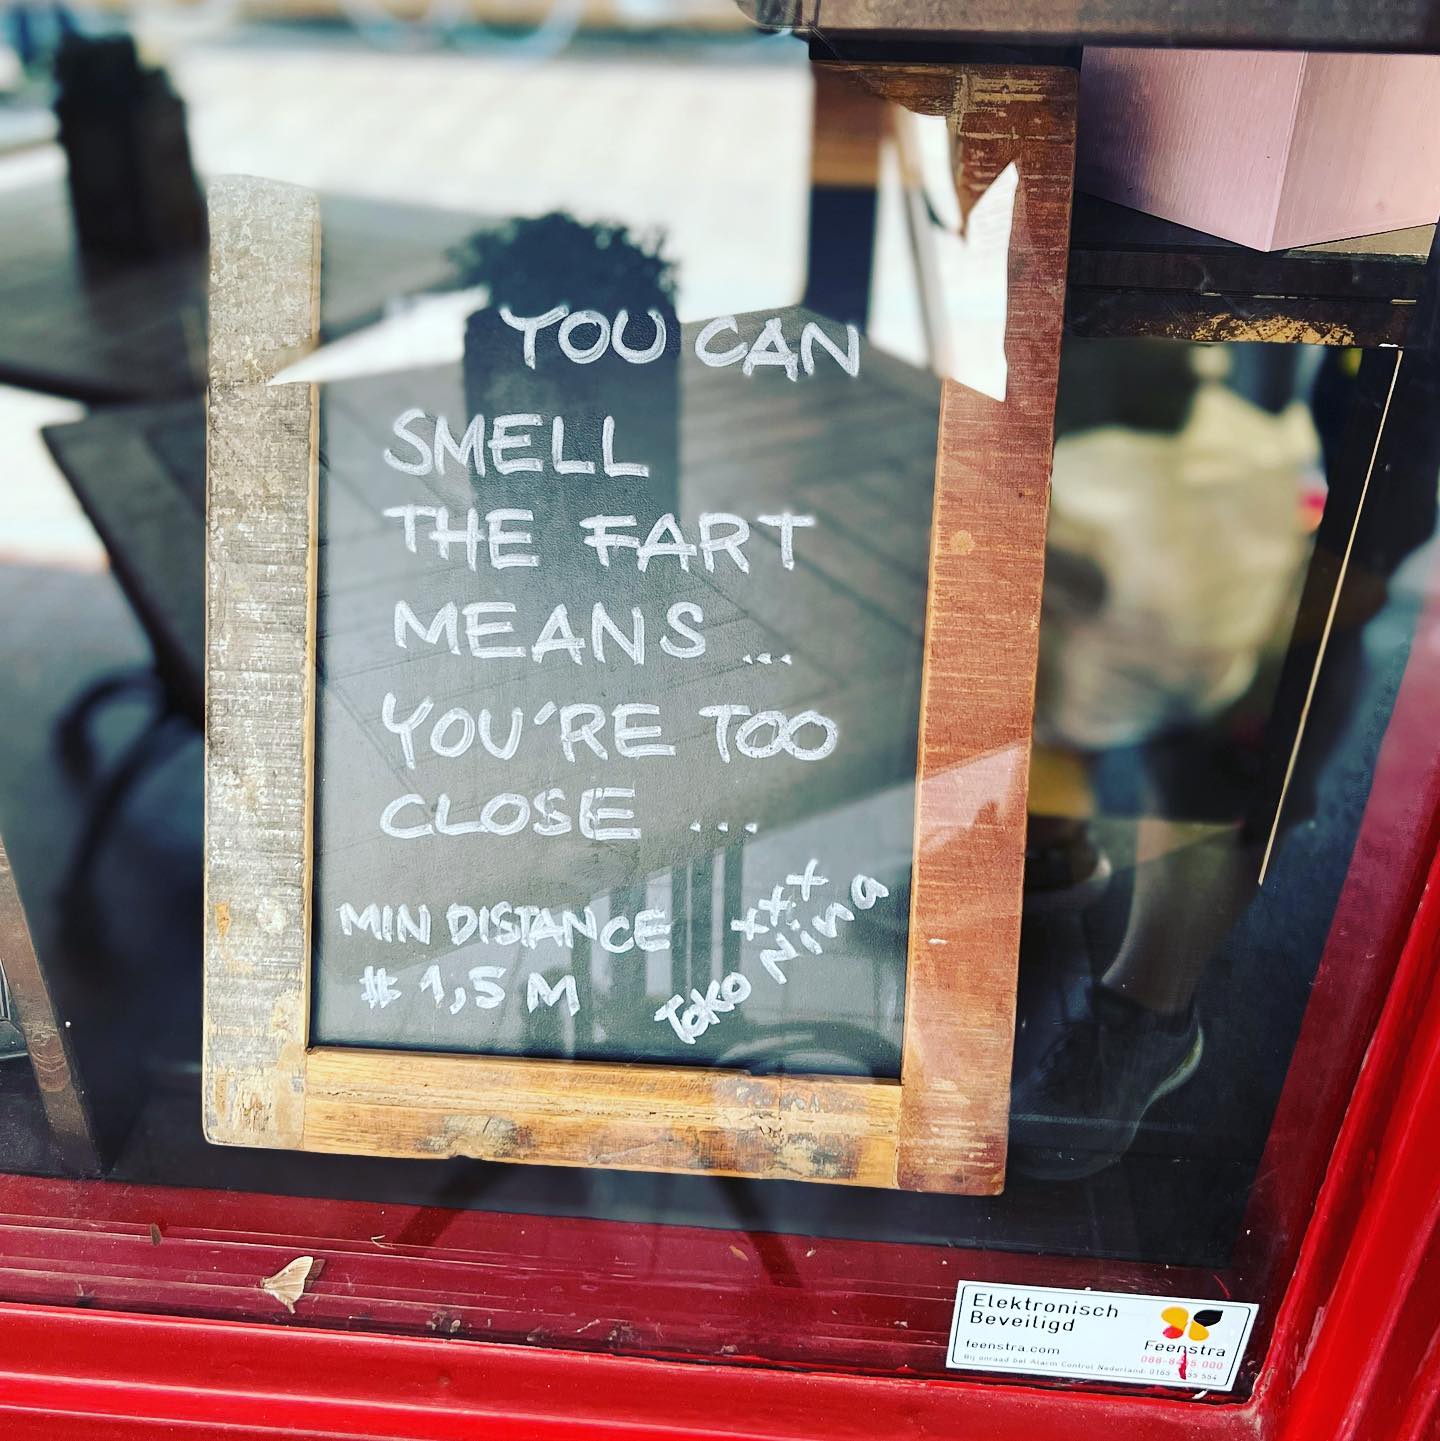 YOU CAN
SMELL
THE FART
MEANS ...
YOU'RE TOO
CLOSE ...
MIN DISTANCE
# 1,5 M
xxx
Toko Nina
Elektronisch
Beveiligd
feenstra.com
Feenstra
Bij onraad bel Alarm Control Nederland: